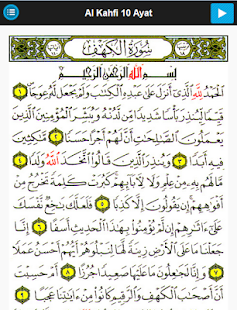 Al Kahfi 10 Ayat
سُورَةُ الكَهْفِ
بِسْمِ اللَّهِ الرَّحْمَٰنِ الرَّحِيمِ
الْحَمْدُ لِلَّهِ الَّذِي أَنزَلَ عَلَىٰ عَبْدِهِ الْكِتَابَ وَلَمْ يَجْعَل لَّهُ عِوَجًا ١
قَيِّمًا لِّيُنذِرَ بَأْسًا شَدِيدًا مِّن لَّدُنْهُ وَيُبَشِّرَ الْمُؤْمِنِينَ الَّذِينَ
يَعْمَلُونَ الصَّالِحَاتِ أَنَّ لَهُمْ أَجْرًا حَسَنًا ٢ مَّاكِثِينَ
فِيهِ أَبَدًا ٣ وَيُنذِرَ الَّذِينَ قَالُوا اتَّخَذَ اللَّهُ وَلَدًا ٤
مَّا لَهُم بِهِ مِنْ عِلْمٍ وَلَا لِآبَائِهِمْ كَبُرَتْ كَلِمَةً تَخْرُجُ مِنْ
أَفْوَاهِهِمْ إِن يَقُولُونَ إِلَّا كَذِبًا ٥ فَلَعَلَّكَ بَاخِعٌ نَّفْسَكَ
عَلَىٰ آثَارِهِمْ إِن لَّمْ يُؤْمِنُوا بِهَٰذَا الْحَدِيثِ أَسَفًا ٦ إِنَّا
جَعَلْنَا مَا عَلَى الْأَرْضِ زِينَةً لَّهَا لِنَبْلُوَهُمْ أَيُّهُمْ أَحْسَنُ عَمَلًا
٧ وَإِنَّا لَجَاعِلُونَ مَا عَلَيْهَا صَعِيدًا جُرُزًا ٨ أَمْ حَسِبْتَ
أَنَّ أَصْحَابَ الْكَهْفِ وَالرَّقِيمِ كَانُوا مِنْ آيَاتِنَا عَجَبًا ٩